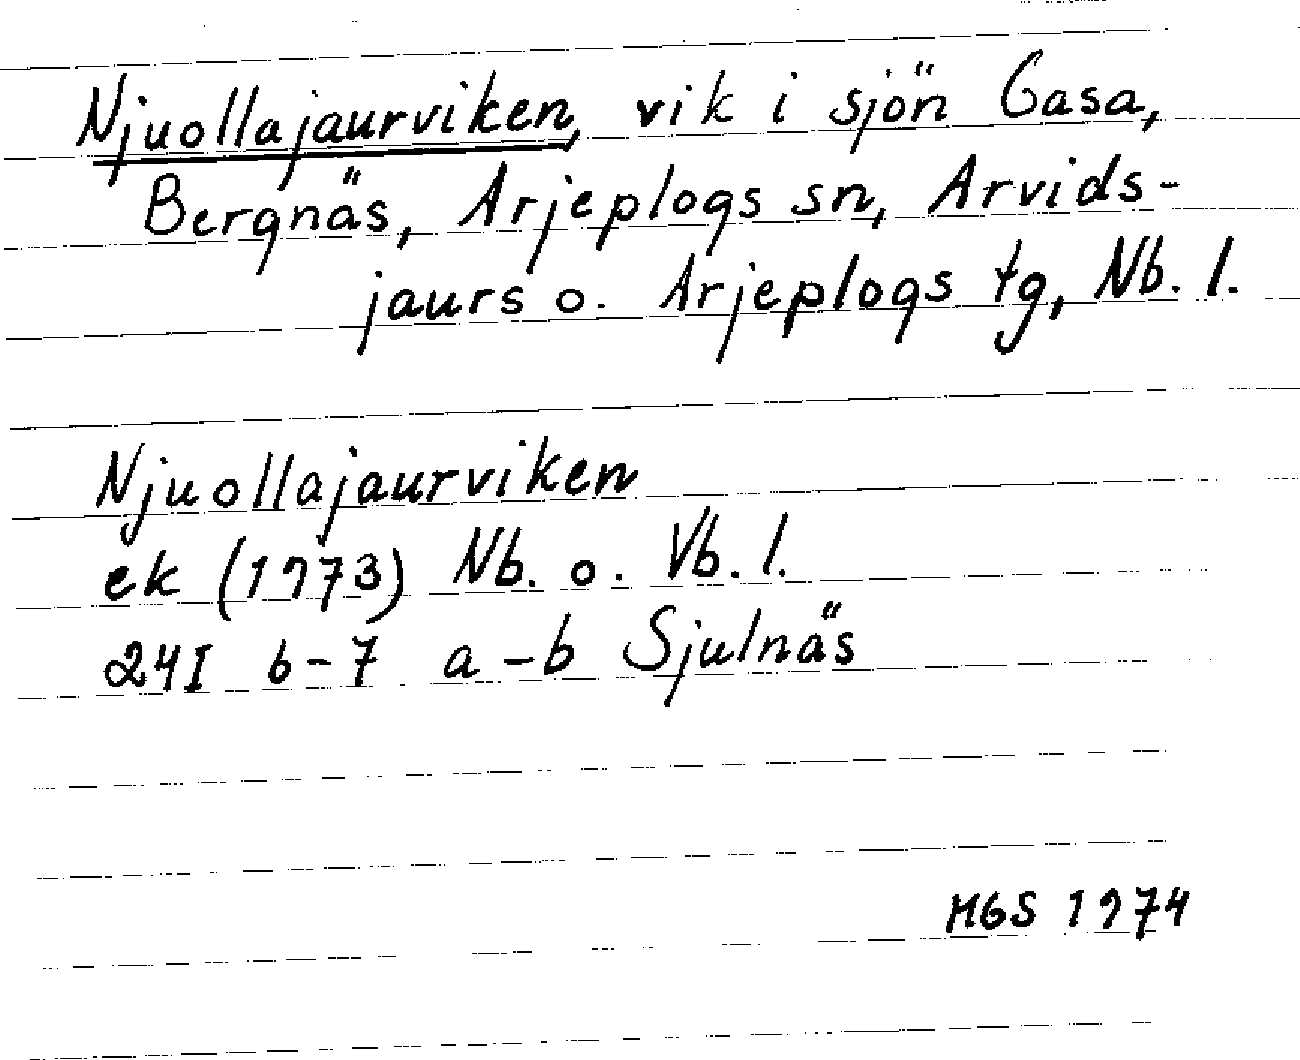 Njuollajaurviken, vik i sjön Gasa,
Bergnäs, Arjeplogs sn, Arvids-
jaurs o. Arjeplogs tg, Nb. l.
Njuollajaurviken
ek (1973) Nb. o. Vb. l.
24I 6-7 a-b Sjulnäs
MGS 1974